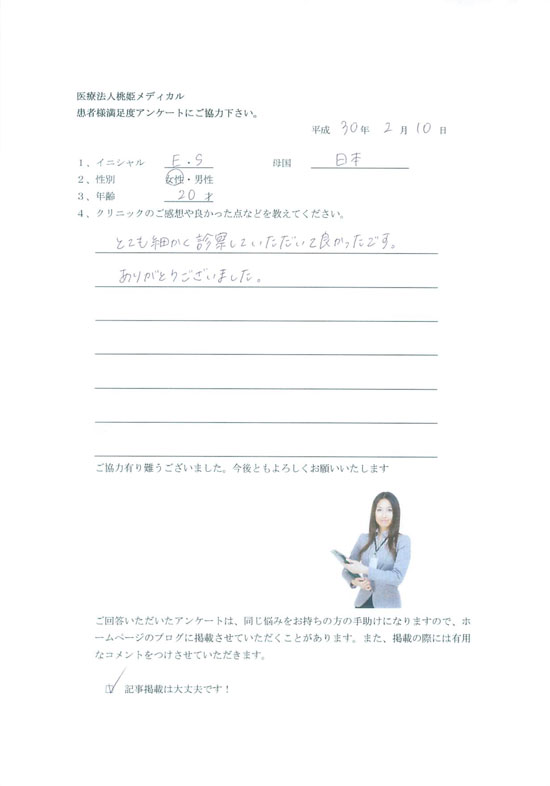 医療法人桃姫メディカル
患者様満足度アンケートにご協力下さい。
平成 30年 2 月 10 日
1、イニシャル E・S 母国 日本
2、性別 女性・男性
3、年齢 20 才
4、クリニックのご感想や良かった点などを教えてください。
とても細かく診察していただいて良かったです。
ありがとうございました。
ご協力有り難うございました。今後ともよろしくお願いいたします
ご回答いただいたアンケートは、同じ悩みをお持ちの方の手助けになりますので、ホ
ームページのブログに掲載させていただくことがあります。また、掲載の際には有用
なコメントをつけさせていただきます。
☑ 記事掲載は大丈夫です!